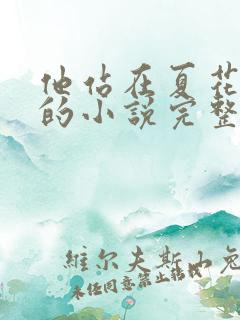 他站在夏花
的小说完整
维尔夫斯山兔
未任同意禁止转载